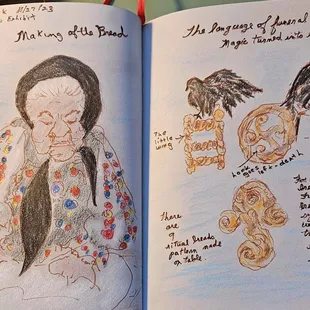 11/27/23
Exhibit
Making of the Bread
The language of funeral
Magic turned into
The
little
wing
hook
goes
left + death
there
are
9
ritual breads
pattern made
on table.